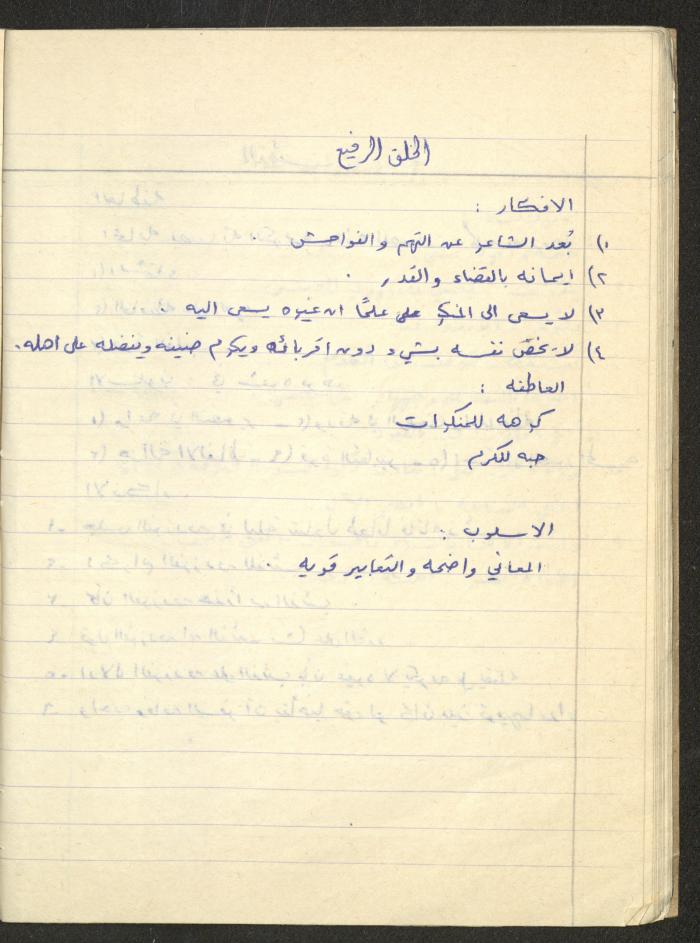 الخلق الرفيع
الافكار :
١) بُعد الشاعر عن التهم والفواحش .
٢) ايمانه بالقضاء والقدر .
٣) لا يسعى الى المنكر على علمًا ان غيره يسعى اليه .
٤) لا يخصّ نفسه بشيء دون اقربائه ويكرم ضيفه ويفضله على اهله .
العاطفه :
كرهه للمنكرات
حبه للكرم
الاسلوب :
المعاني واضحه والتعابير قويه .